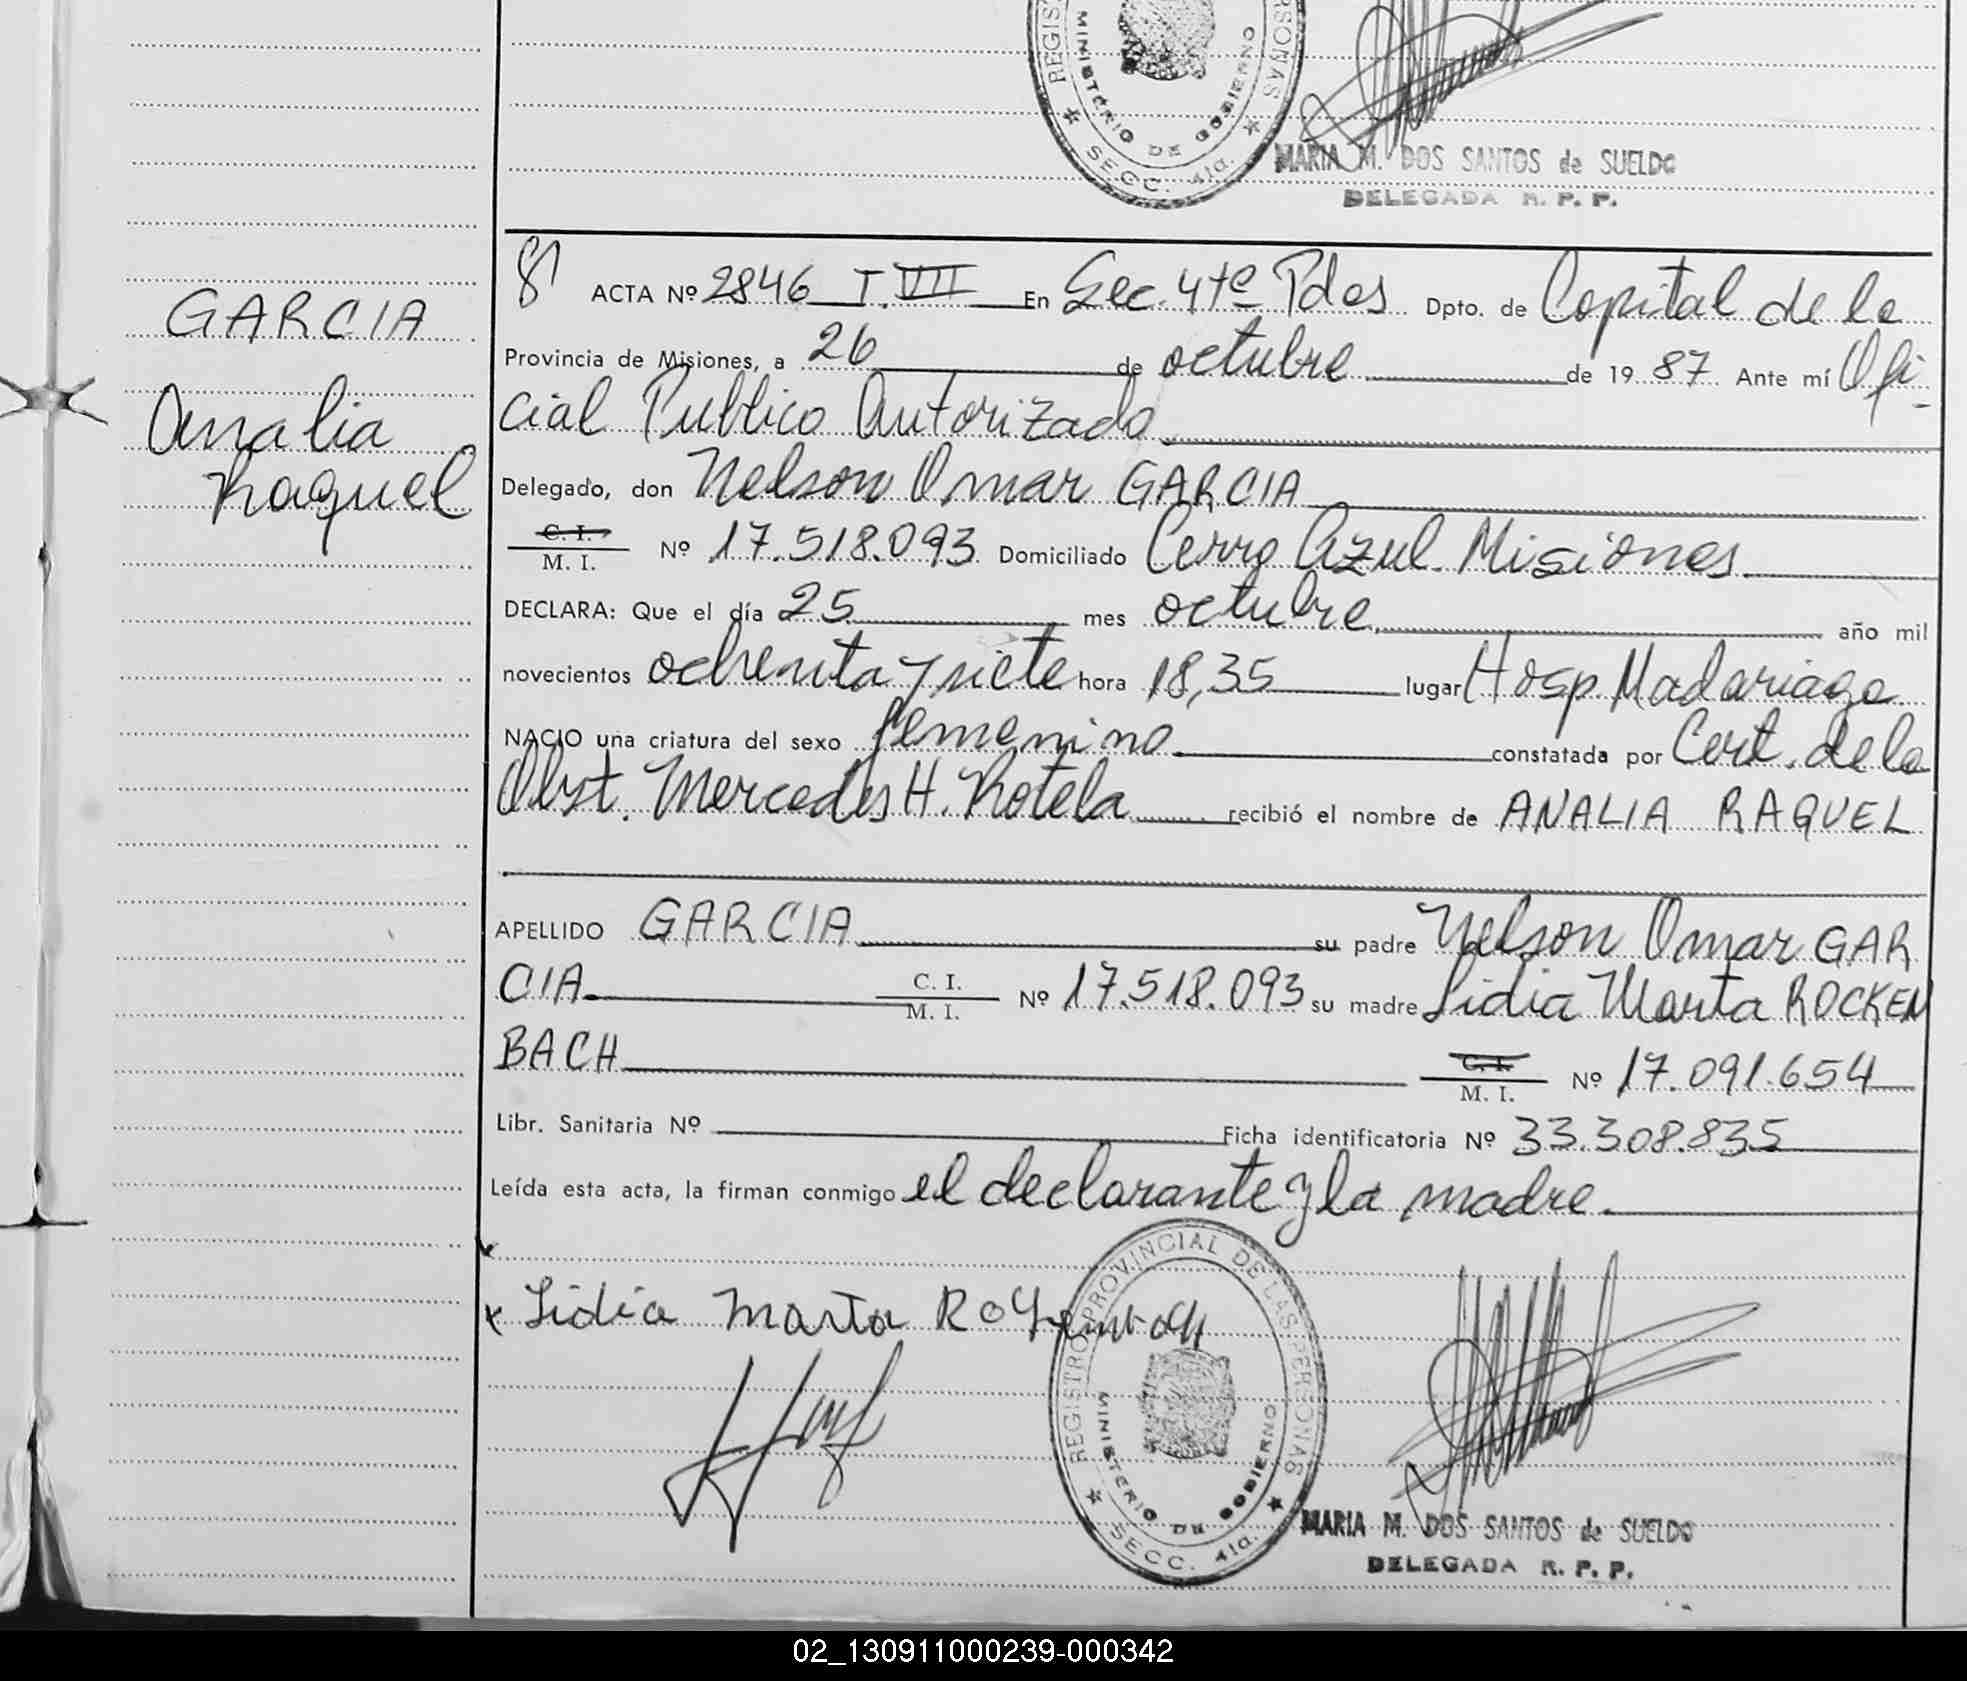 REGIS
RSONAS
MINISTERIO DE GOBIERNO
SECC. 4ta.
MARIA M. DOS SANTOS de SUELDO
DELEGADA R. P. P.
ACTA Nº 2846 T. VII En Sec. 4ta Pdas Dpto. de Capital de la
Provincia de Misiones, a 26 de octubre de 19 87 Ante mí Ofi-
cial Publico Autorizado
GARCIA
Analia
Raquel
Delegado, don Nelson Omar GARCIA
C. I.
M. I. Nº 17.518.093 Domiciliado Cerro Azul. Misiones
DECLARA: Que el día 25 mes octubre, año mil
novecientos ochenta y siete hora 18,35 lugar Hosp. Madariaga
NACIO una criatura del sexo femenino constatada por Cert. de la
Obst. Mercedes H. Rotela recibió el nombre de ANALIA RAQUEL
APELLIDO GARCIA su padre Nelson Omar GAR
CIA C. I.
M. I. Nº 17.518.093 su madre Lidia Marta ROCKEN
BACH C. I.
M. I. Nº 17.091.654
Libr. Sanitaria Nº Ficha identificatoria Nº 33.308.835
Leída esta acta, la firman conmigo el declarante y la madre.
Lidia Marta
REGISTRO PROVINCIAL DE LAS PERSONAS
MINISTERIO DE GOBIERNO
SECC. 4ta.
MARIA M. DOS SANTOS de SUELDO
DELEGADA R. P. P.
02_130911000239-000342